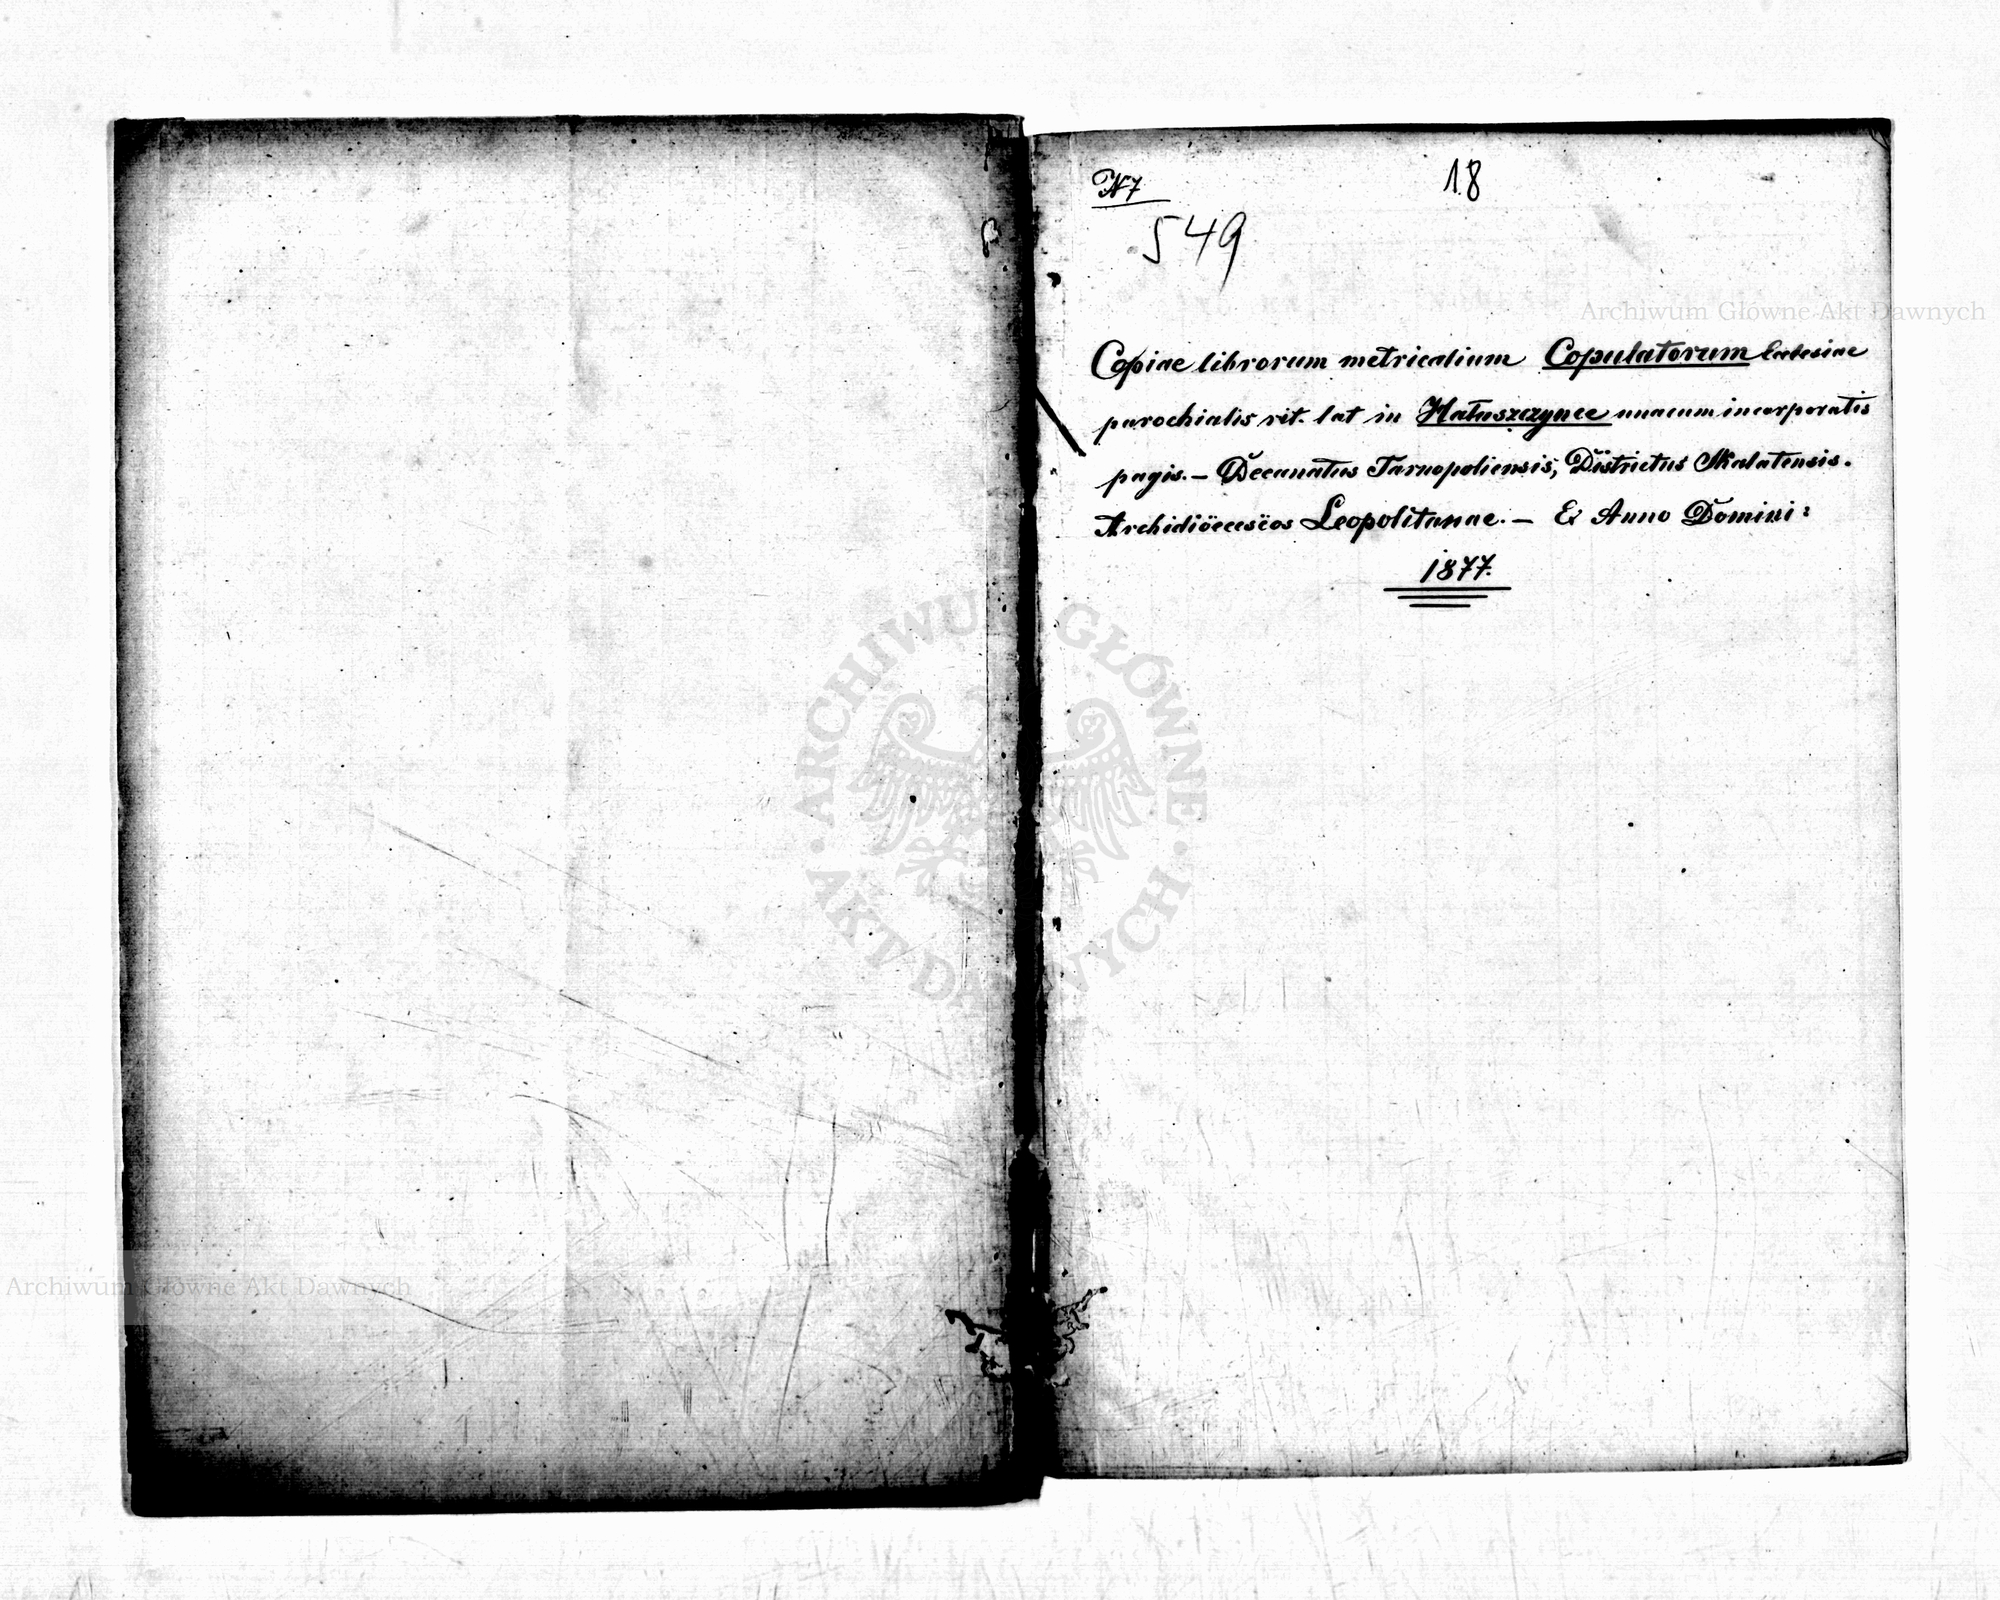 N 7
18
549
Archiwum Główne Akt Dawnych
Copiae librorum metricalium Copulatorum Ecclesiae
parochialis rit. lat in Hałuszczynce unacum incorporatis
pagis. — Decanatus Tarnopoliensis, Districtus Skalatensis.
Archidiöecesëos Leopolitanae. — Ex Anno Domini:
1877.
ARCHIWUM GŁÓWNE
AKT DAWNYCH
Archiwum Główne Akt Dawnych